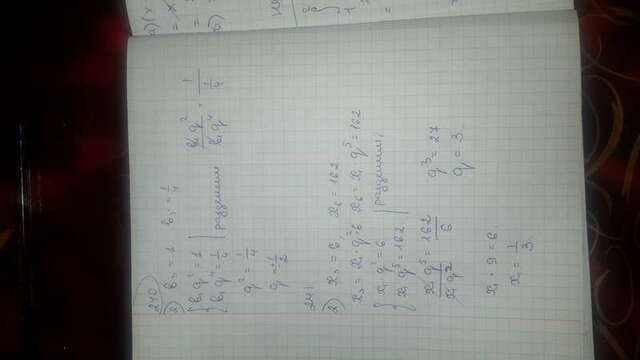 240
2) b₃ = 1   b₅ = 1/4
{ b₁q² = 1
{ b₁q⁴ = 1/4 | разделим   b₁q²/b₁q⁴ = 1/(1/4)
q² = 1/4
q = 1/2
241
2) x₃ = 6,   x₆ = 162
x₃ = x₁ · q² = 6   x₆ = x₁ q⁵ = 162
{ x₁ q² = 6
{ x₁ q⁵ = 162 | разделим,
x₁ q⁵/x₁ q² = 162/6   q³ = 27
q = 3
x₁ · 9 = 6
x₁ = 1/3